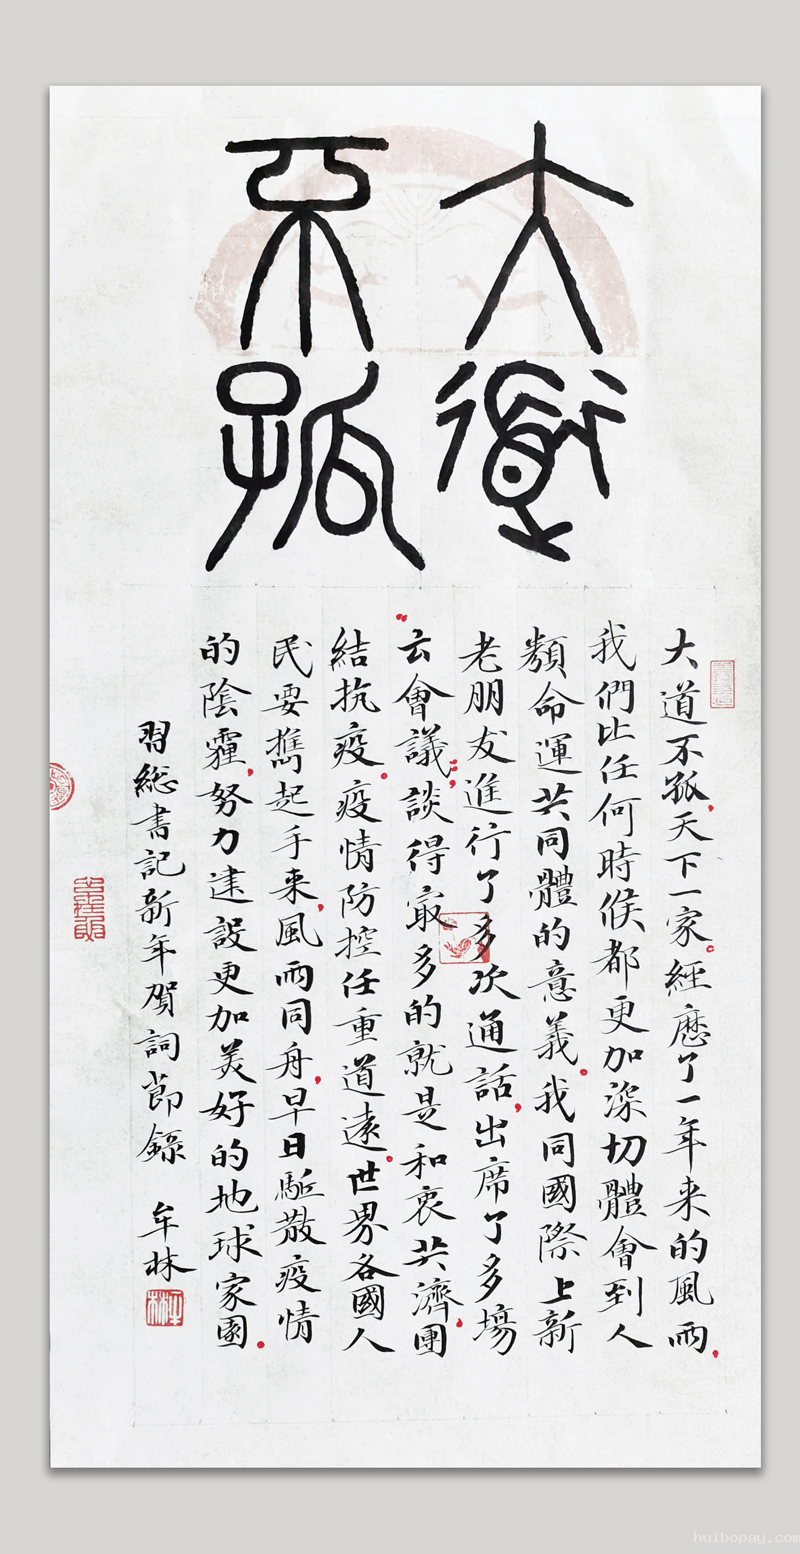 大道
不孤
大道不孤，天下一家。經歷了一年來的風雨，
我們比任何時候都更加深切體會到人
類命運共同體的意義。我同國際上新
老朋友進行了多次通話，出席了多場
“云會議”，談得最多的就是和衷共濟，團
結抗疫。疫情防控任重道遠。世界各國人
民要攜起手來，風雨同舟，早日驅散疫情
的陰霾，努力建設更加美好的地球家園。
習總書記新年賀詞節錄
牟林
huibopay.com